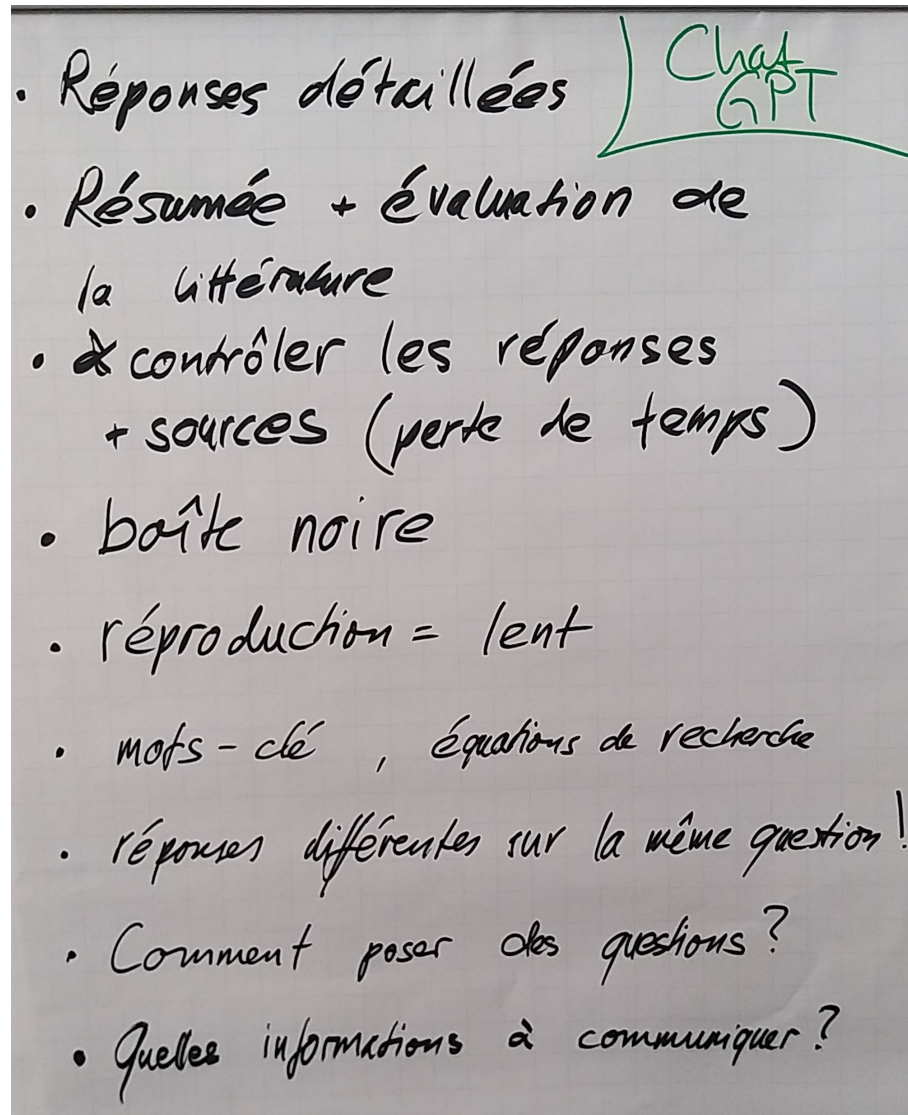 Chat
GPT
• Réponses détaillées
• Résumée + évaluation de
la littérature
• à contrôler les réponses
+ sources (perte de temps)
• boîte noire
• réproduction = lent
• mots-clé, équations de recherche
• réponses différentes sur la même question!
• Comment poser des questions?
• Quelles informations à communiquer?